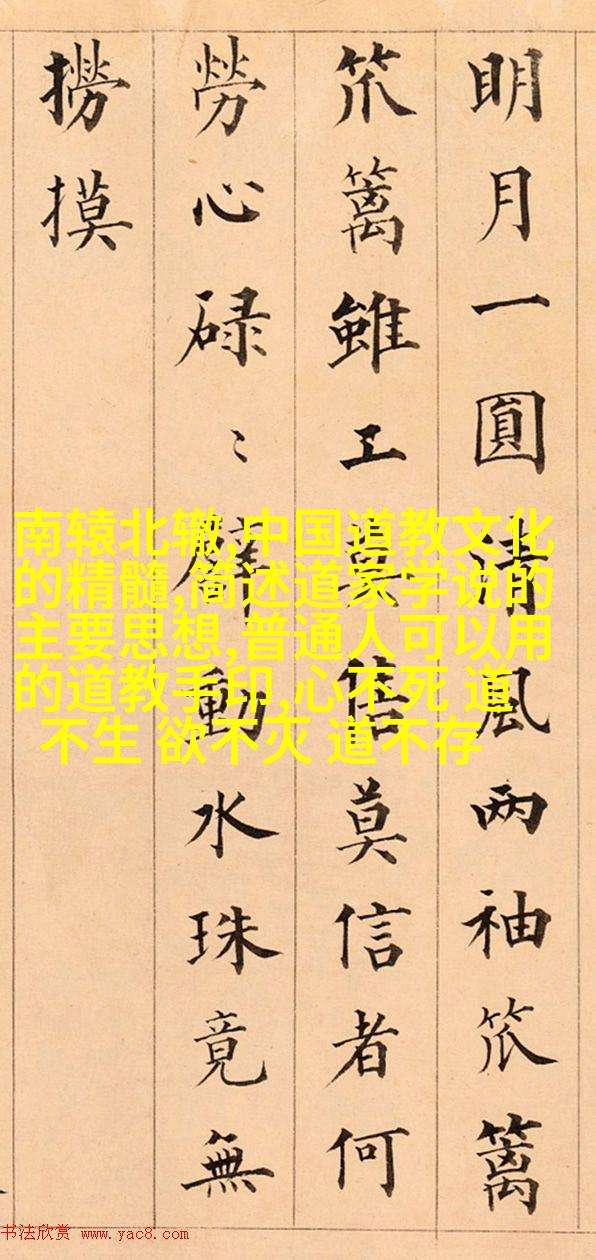 明月一圓清風两袖笊篱
笊篱雖工莫信莫信者何
勞心碌〻動水珠竟無
撈摸
南辕北辙,中国道教文化
的精髓,简述道家学说的
主要思想,普通人可以用
的道教手印,心不死 道
不生 欲不灭 道不存
书法欣赏 www.yac8.com